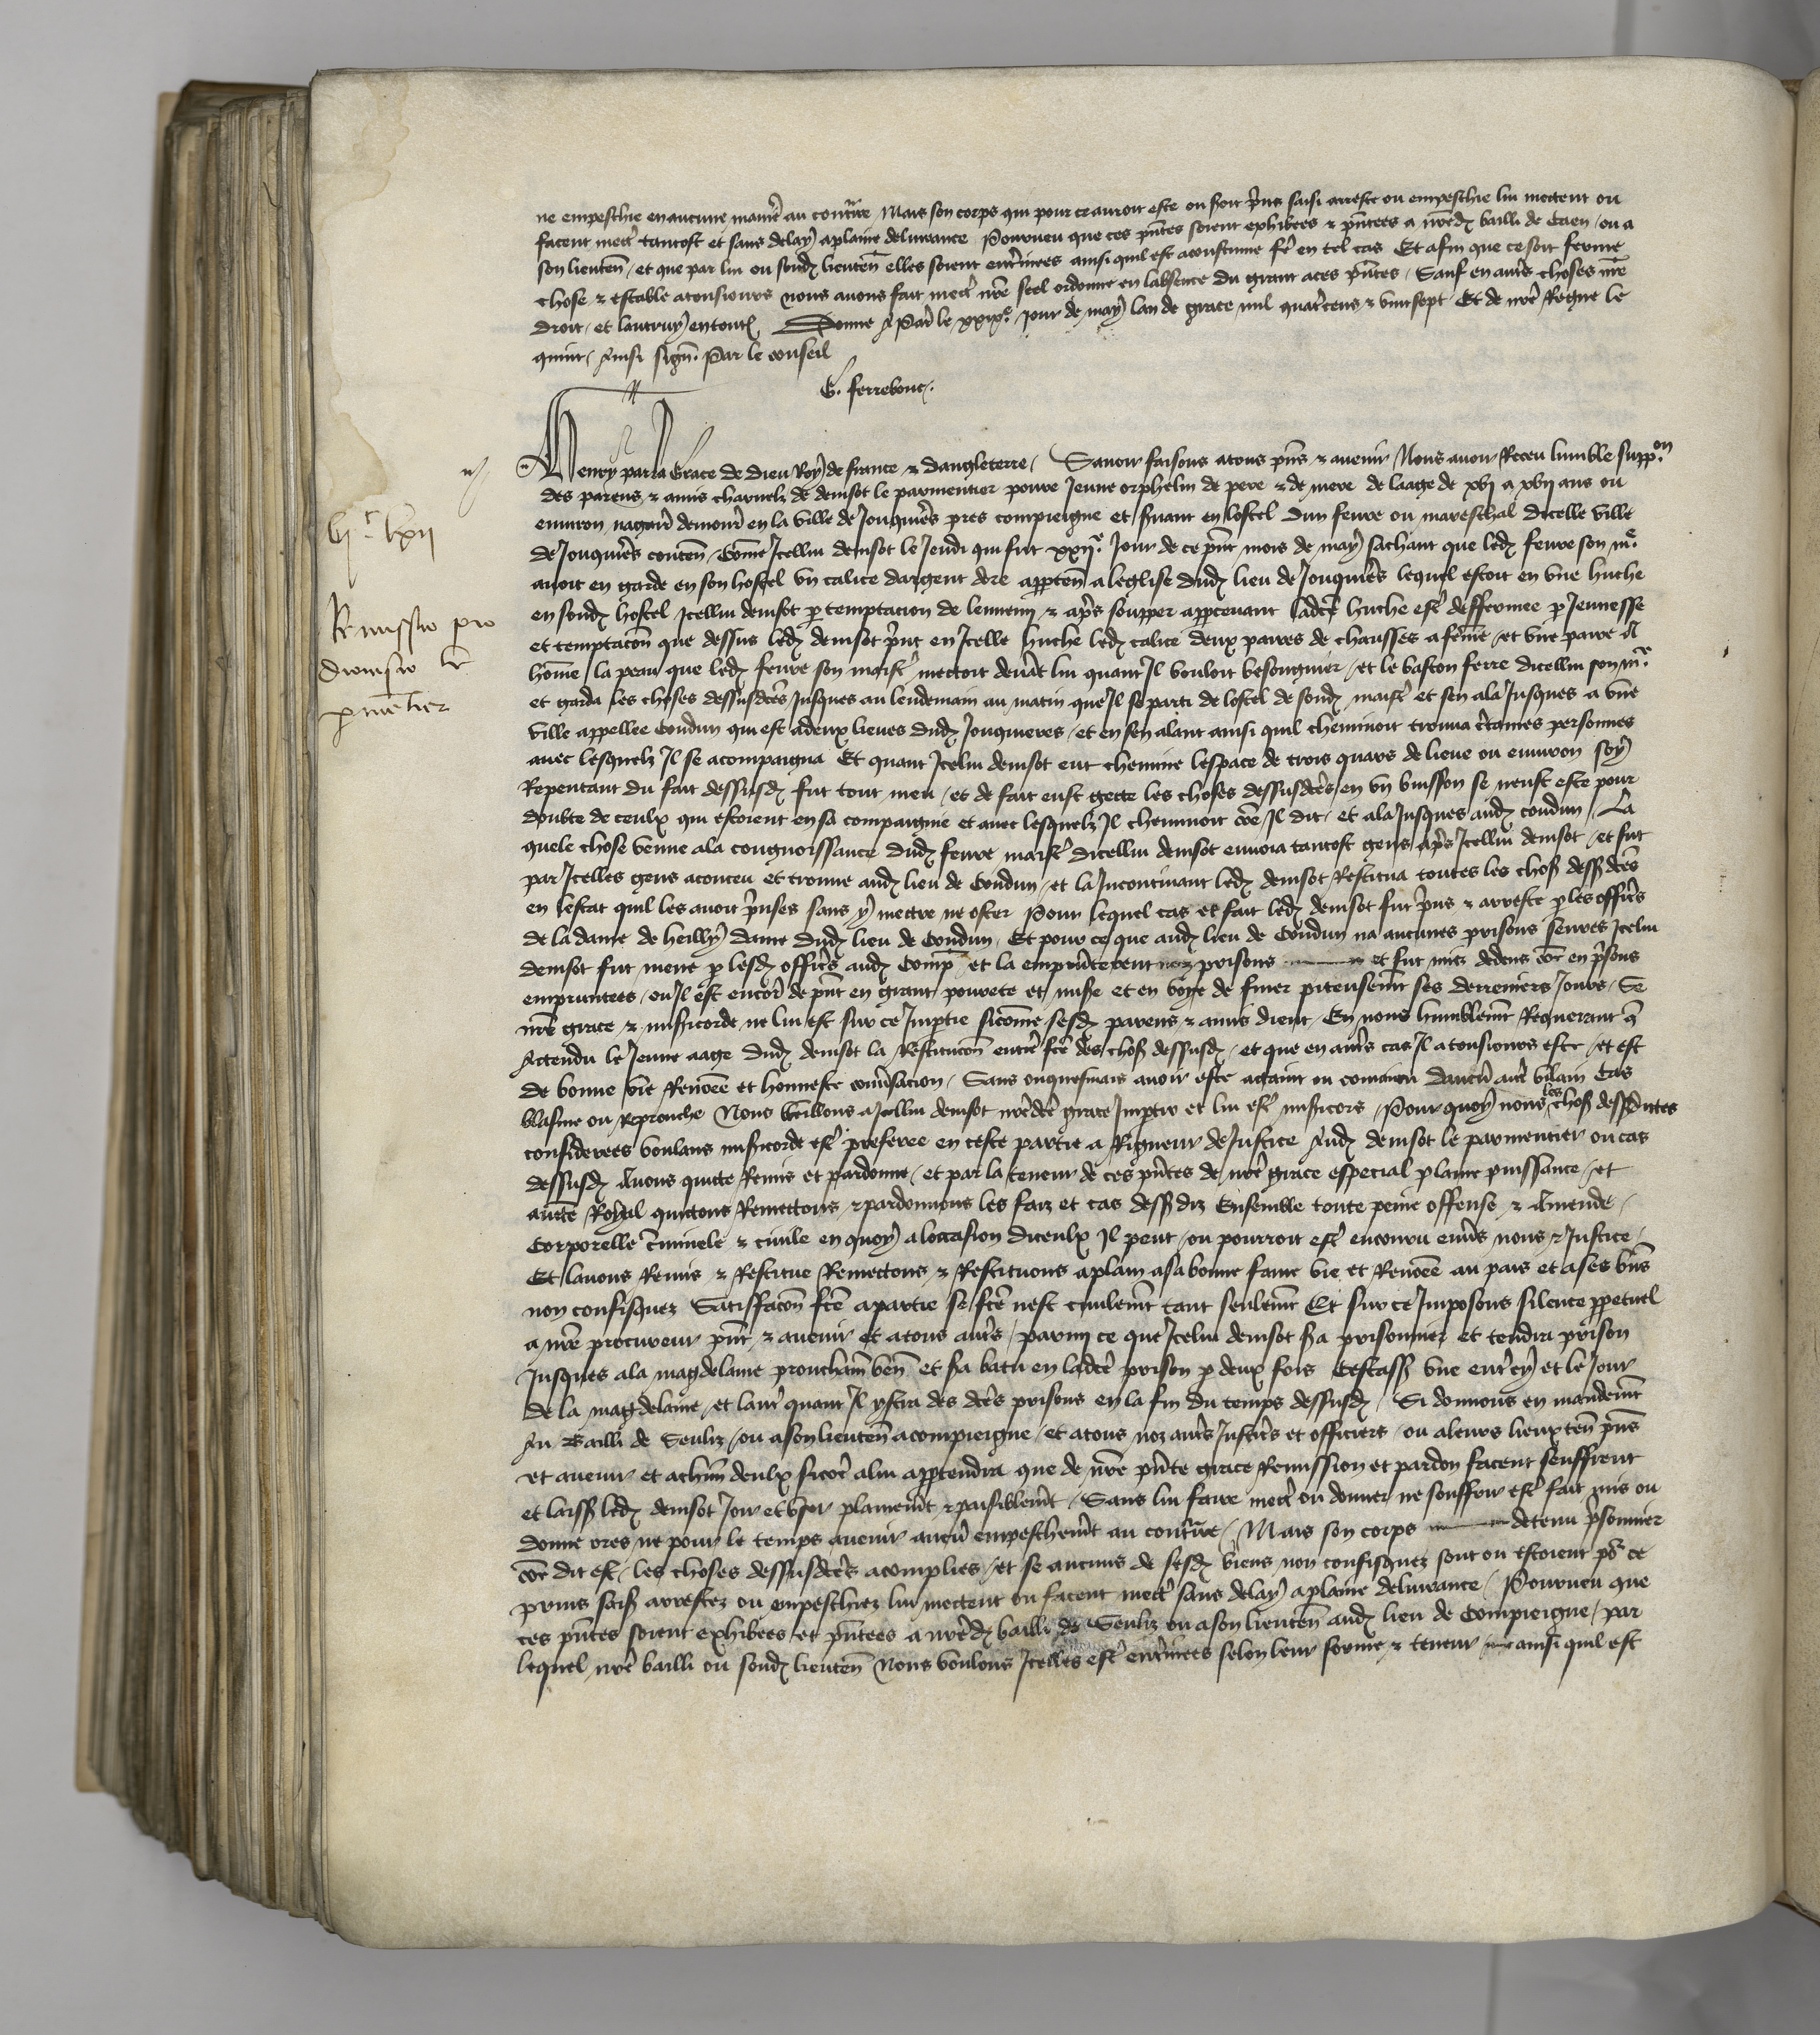 ne empeschie en aucune maniẽ au contrãire Mais son corps qui pour ce auroit este ou soit p̃ns saisi arreste ou empeschie lui mectent ou
facent mect̃ tantost et sans delay a plaine deliurance Pourueu que ces p̃ntes soient exhibees & p̃ntees a nr̃ed bailli de Caen / ou a
son lieuteñ / et que par lui ou soñd lieuteñ elles soient entẽrinees ainsi quil est acoustume fẽ en tel cas Et afin que ce soit ferme
chose & estable a tousiours nous auons fait mect̃ nr̃e scel ordonne en labsence du grant a ces p̃ntes / Sauf en autr̃s choses nr̃e
droit / et lautruy en toutes Donne a Paris le xxixe jour de may lan de grace mil quatr̃cens & vint sept Et de nr̃e Regne le
quint / Ainsi signe Par le conseil
G. ferrebouc .
Henry par la Grace de Dieu Roy de france & dangleterre / Sauoir faisons a tous p̃ns & auenir Nous auoir Receu lumble supp.on
des parens & amis charnelz de denisot le parmentier poure Jeune orphelin de pere & de mere de laage de xvj a xvij ans ou
enuiron nagaires demour̃ en la ville de Jonquier̃s pres compiengne et seruant en lostel dun feure ou mareschal dicelle ville
de Jonquier̃s conteñ / Com̃e Icellui denisot le Jeudi qui fut xxije Jour de ce p̃nt mois de may sachant que led feure son me
auoit en garde en son hostel vn calice dargent dore apparteñ a leglise dud lieu de Jonquier̃s lequel estoit en vne huche
en sond hostel Icellui denisot p temptacion de lennemi & apr̃s soupper apperceuant lad̃ce huche est̃ deffermee p Jeunesse
et temptacõn que dessus led denisot print en Icelle huche led calice deux paires de chausses a fem̃e / et vne paire a
hom̃e / la peau que led feure son maist̃ mectoit deuãt lui quant Il vouloit besongnier / et le baston ferre dicellui son me
et garda les choses dessusdc̃es Jusques au lendemain au matin que Il se parti de lostel de sond maist̃ et sen ala Jusques a vne
ville appellee Coudun qui est a deux lieues dud Jonquieres / et en sen alant ainsi quil cheminoit trouua c̃taines personnes
auec lesquelz Il se acompaigna Et quant Icelui denisot eut chemine lespace de trois quars de lieue ou enuiron soy
Repentant du fait dessusd fut tout meu / et de fait eust gecte les choses dessusdc̃es en vn buisson se neust este pour
doubte de ceulx qui estoient en sa compaignie et auec lesquelz Il cheminoit com̃e Il dit / et ala Jusques aud coudun / La
quele chose venue a la congnoissance dud feure maist̃ dicellui denisot enuoia tantost gens apr̃s Icellui denisot / et fut
par Icelles gens aconceu et trouue aud lieu de Coudun / et la Incontinant led denisot Restitua toutes les choses dessdc̃es
en lestat quil les auoit p̃nses sans y mectre ne oster Pour lequel cas et fait led denisot fut p̃ns & arreste p les offic̃rs
de la dame de heilly dame dud lieu de Coudun / Et pour ce que aud lieu de Coudun na aucunes prisons seures Icelui
denisot fut mene p lesd offic̃rs aud Comp̃ et la emprũterent noz prisons et fut mis dedens com̃e en p̃sons
empruntees / ou Il est encor̃ de p̃nt en grant pourete et mis̃e et en voye de finer piteusem̃t ses derreniers Jours / Se
nr̃e grace & mis̃icorde ne lui est sur ce Imp̃tie sicom̃e sesd parens & amis dient / En nous humblem̃t Requerant q̃
Actendu le Jeune aage dud denisot la Restitucõn entier̃ fc̃e des choses dessusd / et que en autr̃s cas Il a tousiours este / et est
de bonne vie Renom̃ee et honneste conũsacion / Sans onquesmais auoir este actaint ou conuaincu daucũ autr̃ vilain Cas
blasme ou Reprouche Nous vueillons a Icellui denisot nr̃edc̃e grace Imp̃tir et lui est̃ mis̃icors / Pour quoy nous les choses dessusdictes
considerees voulans mis̃icorde est̃ preferee en ceste partie a Rigueur de Justice Aud denisot le parmentier ou cas
dessusd Auons quicte Remis et pardonne / et par la teneur de ces p̃ntes de nr̃e grace especial plaine puissance / et
aucte Royal quictons Remectons & pardonnons les faiz et cas dessdiz Ensemble toute peine offense & Amende /
Corporelle c̃iminele & ciuile en quoy a loccasion diceulx Il peut / ou pourroit est̃ encouru enũs nous & Justice /
Et lauons Remis & Restitue Remectons & Restituons a plain a sa bonne fame vie et Renom̃ee au pais et a ses bñs
non confisquez Satisfacõn fc̃e a partie se fc̃e nest ciuilem̃t tant seulem̃t Et sur ce Imposons silence ppetuel
a nr̃e procureur p̃nt & auenir et a tous autr̃s / parmi ce que Icelui denisot s̃a prisonnier et tendra prison
Jusques a la magdelaine prouchaiñ veñ et s̃a batu en ladc̃e prison p deux fois Cestass̃ vne entr̃ cy et le Jour
de la magdelaine / et lautr̃ quant Il ystra des dc̃es prisons en la fin du temps dessusd / Si donnons en mandem̃t
Au Bailli de Senliz / ou a son lieuteñ a compiengne / et a tous noz autr̃s Justic̃rs et officiers / ou a leurs lieuxteñ p̃ns
et auenir et a chũn deulx sicom̃e a lui appartendra que de nr̃e p̃nte grace Remission et pardon facent seuffrent
et laissẽt led denisot Joir et vser plainem̃t & paisiblem̃t / Sans lui faire mect̃ ou donner ne souffrir est̃ fait mis ou
donne ores ne pour le temps auenir aucũ empeschem̃t au contrãire / Mais son corps detenu p̃sonnier
com̃e dit est / les choses dessusdc̃es acomplies / et se aucuns de sesd biens non confisquez sont ou estoient po~ ce
prins saisiz arrestez ou empeschiez lui mectent ou facent mect̃ sans delay a plaine deliurance / Pourueu que
ces p̃ntes soient exhibees et p̃ntees a nr̃ed bailli de Senliz ou a son lieuteñ aud lieu de Compiengne / par
lequel nr̃e bailli ou sond lieuteñ Nous voulons Icelles est̃ entẽrinees selon leur forme & teneur ainsi quil est
vjc lxij
Remissio pro
dionisio le
parmẽtier